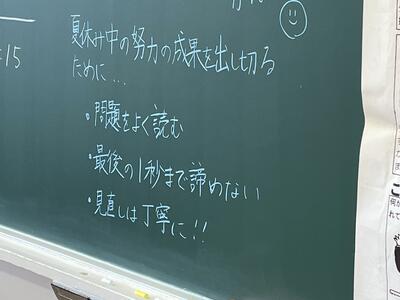 15
夏休み中の努力の成果を出し切る
ために…
・問題をよく読む
・最後の1秒まで諦めない
・見直しは丁寧に!!